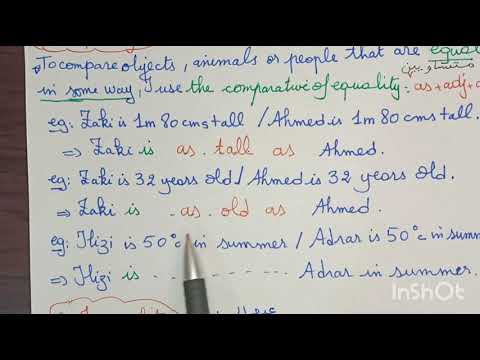 To compare objects, animals or people that are equal
متساويين
in some way, I use the comparative of equality: as + adj +
eg: Zaki is 1m 80 cms tall / Ahmed is 1m 80 cms tall.
⇒ Zaki is as tall as Ahmed.
eg: Zaki is 32 years old / Ahmed is 32 years old.
⇒ Zaki is as old as Ahmed.
eg: Ilizi is 50°c in summer / Adrar is 50°c in summ
⇒ Ilizi is - - - - - - - - - Adrar in summer.
InShOt